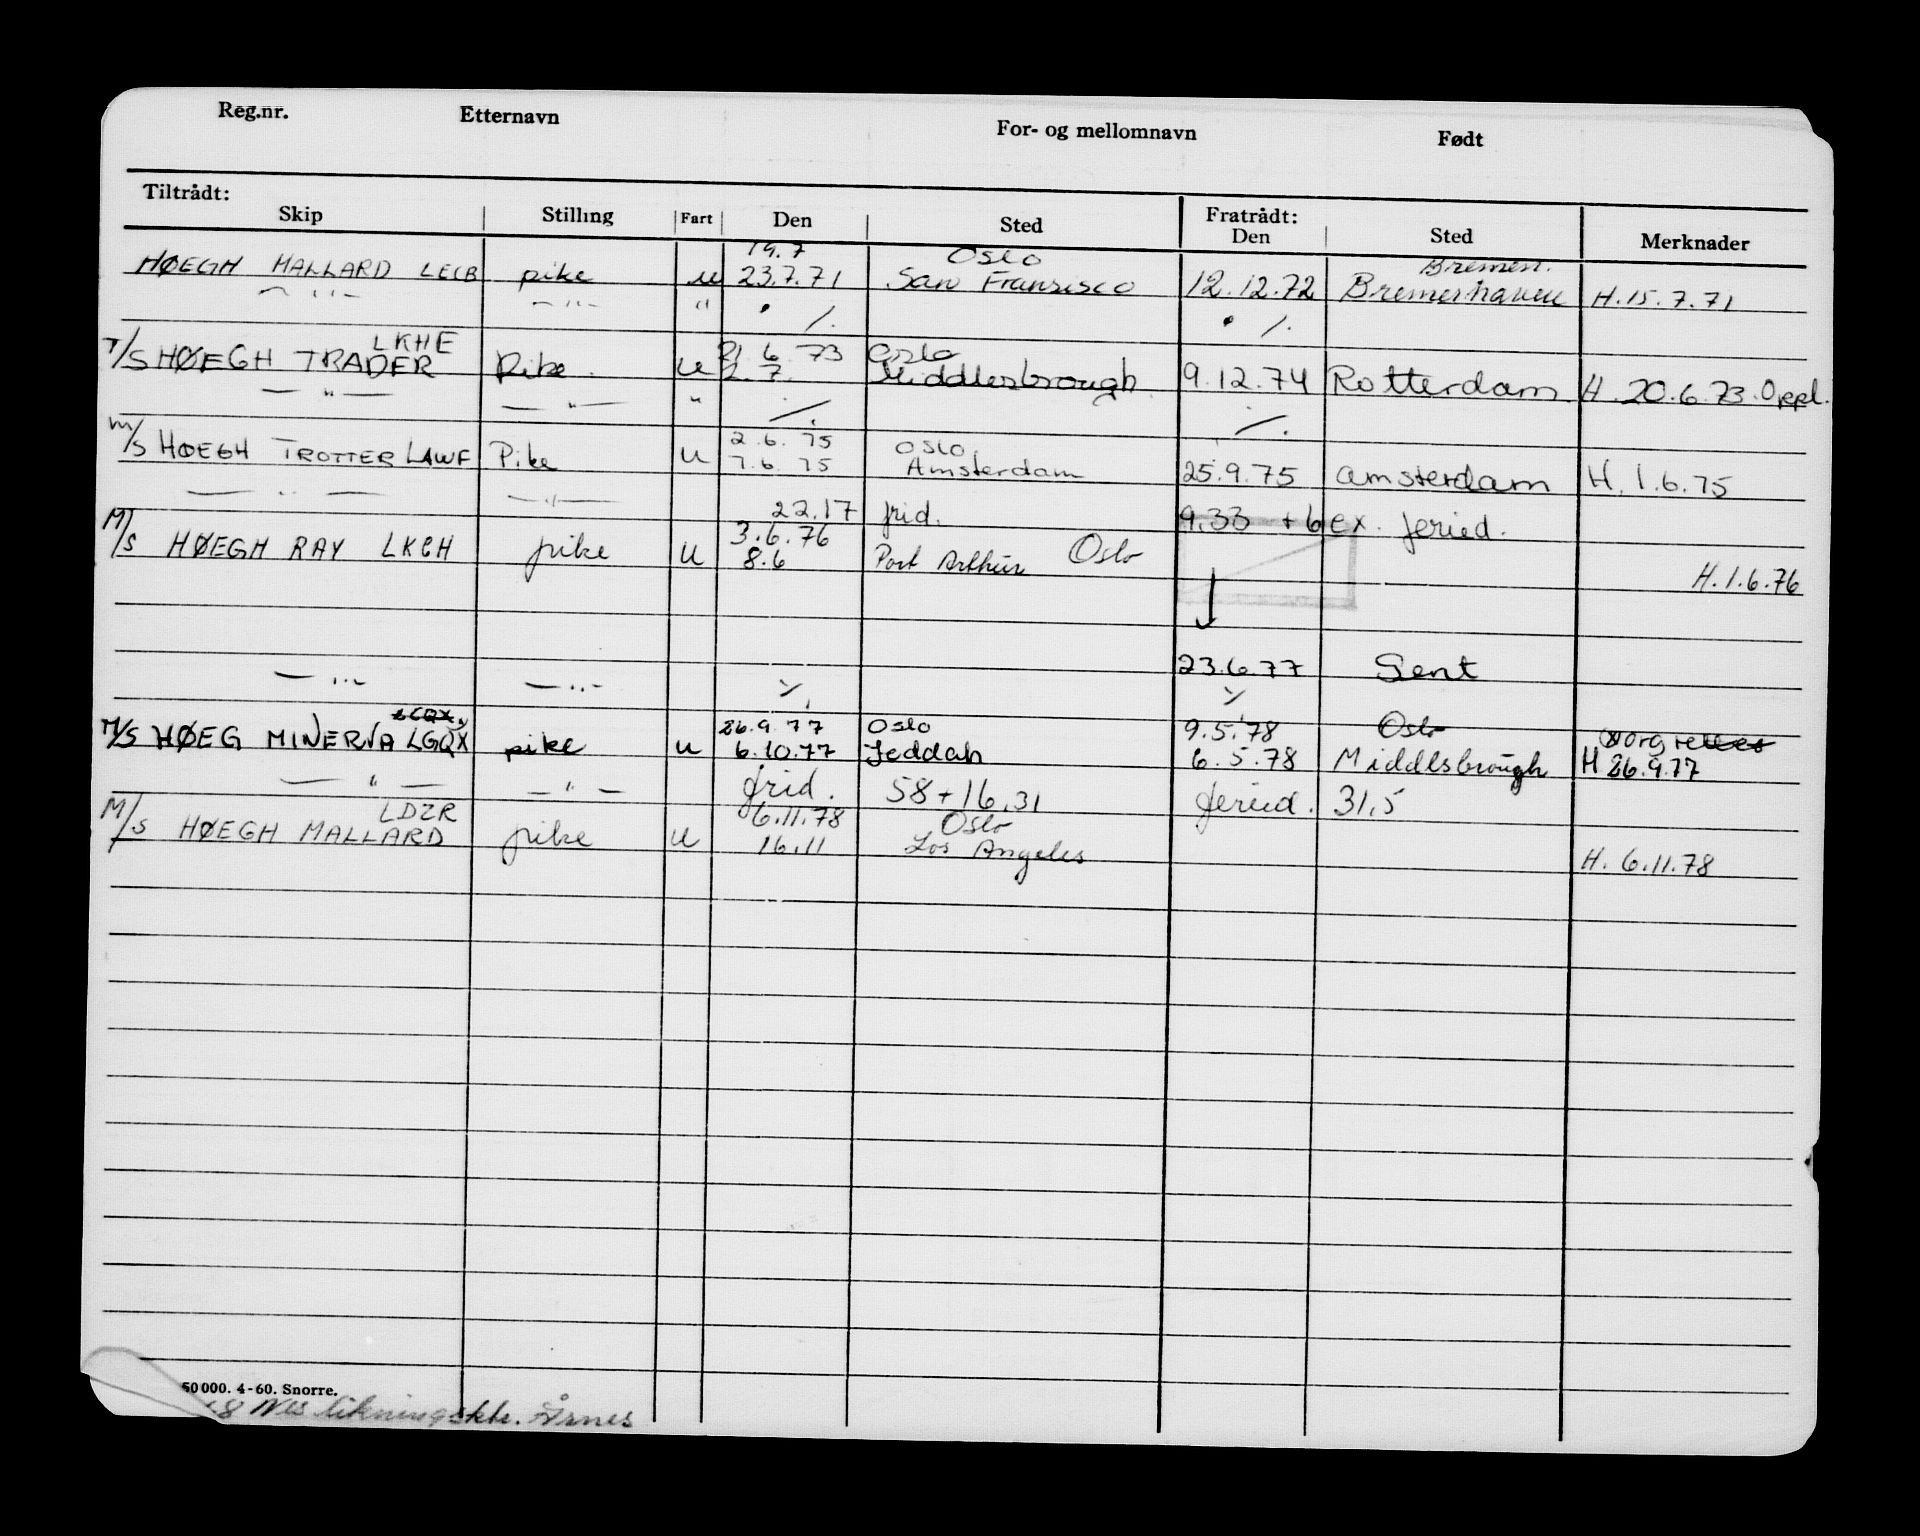 Reg.nr. Etternavn For- og mellomnavn Født
Tiltrådt: Fratrådt:
Skip Stilling Fart Den Sted Den Sted Merknader
19.7 Oslo Bremen.
HØEGH MALLARD LECB pike u 23.7.71 San Fransisco 12.12.72 Bremerhaven H.15.7.71
— " — — " — " ·/. ·/.
LKHE 21.6.73 Oslo
T/S HØEGH TRADER Pike u 2.7. Middlesbrough 9.12.74 Rotterdam H. 20.6.73. Oppl.
— " — — " — " ·/. ·/.
2.6.75 Oslo
M/S HØEGH TROTTER LAWF Pike u 7.6.75 Amsterdam 25.9.75 Amsterdam H. 1.6.75
— " — — " — 22.17 frid. 9.33 + 6 ex. feried.
3.6.76 Oslo
M/S HØEGH RAY LKCH pike u 8.6 Port Arthur H.1.6.76
23.6.77 Gent
— " — — " — ·/. ·/.
LCQX 26.9.77 Oslo 9.5.78 Oslo
M/S HØEG MINERVA LGQX pike u 6.10.77 Jeddah 6.5.78 Middlsbrough H 26.9.77
— " — — " — frid. 58+16,31 feried. 31,5
LDZR 6.11.78 Oslo
M/S HØEGH MALLARD pike u 16.11 Los Angeles H. 6.11.78
50000. 4-60. Snorre.
Nes likningsktr. Årnes